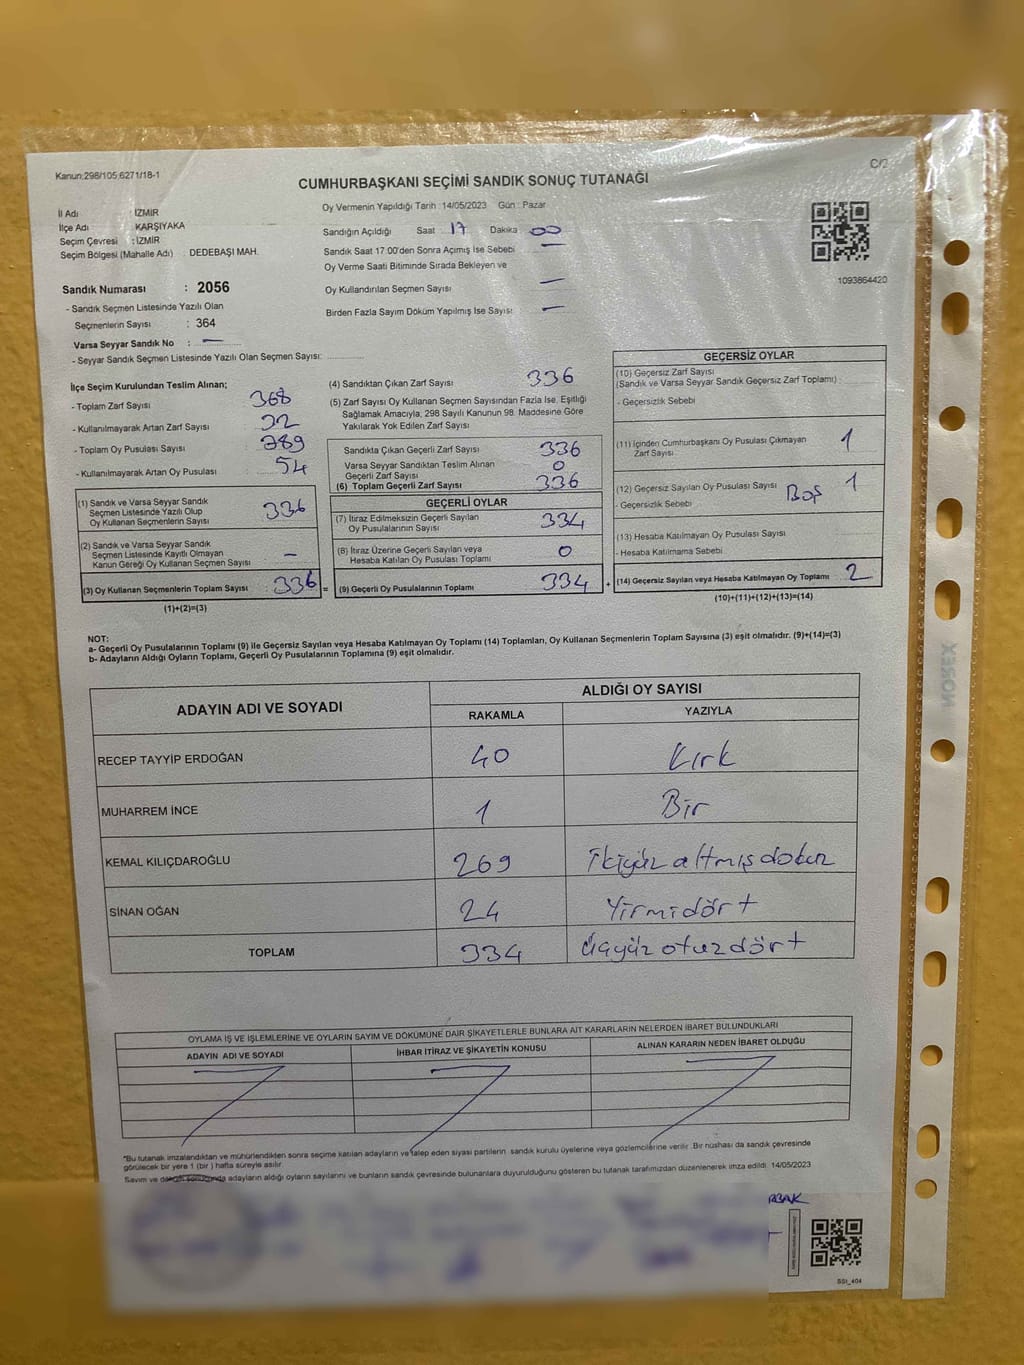 Kanun:298/105;6271/18-1
C/2
CUMHURBAŞKANI SEÇİMİ SANDIK SONUÇ TUTANAĞI
İl Adı : İZMİR
İlçe Adı : KARŞIYAKA
Seçim Çevresi : İZMİR
Seçim Bölgesi (Mahalle Adı) : DEDEBAŞI MAH.
Sandık Numarası : 2056
- Sandık Seçmen Listesinde Yazılı Olan
Seçmenlerin Sayısı : 364
Varsa Seyyar Sandık No : —
- Seyyar Sandık Seçmen Listesinde Yazılı Olan Seçmen Sayısı:
Oy Vermenin Yapıldığı Tarih : 14/05/2023 Gün : Pazar
Sandığın Açıldığı Saat 17 Dakika 00
Sandık Saat 17.00'den Sonra Açımış İse Sebebi —
Oy Verme Saati Bitiminde Sırada Bekleyen ve
Oy Kullandırılan Seçmen Sayısı —
Birden Fazla Sayım Döküm Yapılmış İse Sayısı: —
1093864420
İlçe Seçim Kurulundan Teslim Alınan;
- Toplam Zarf Sayısı 368
- Kullanılmayarak Artan Zarf Sayısı 32
- Toplam Oy Pusulası Sayısı 389
- Kullanılmayarak Artan Oy Pusulası 54
(1) Sandık ve Varsa Seyyar Sandık
Seçmen Listesinde Yazılı Olup
Oy Kullanan Seçmenlerin Sayısı 336
(2) Sandık ve Varsa Seyyar Sandık
Seçmen Listesinde Kayıtlı Olmayan
Kanun Gereği Oy Kullanan Seçmen Sayısı —
(3) Oy Kullanan Seçmenlerin Toplam Sayısı 336 =
(1)+(2)=(3)
(4) Sandıktan Çıkan Zarf Sayısı 336
(5) Zarf Sayısı Oy Kullanan Seçmen Sayısından Fazla İse, Eşitliği
Sağlamak Amacıyla, 298 Sayılı Kanunun 98. Maddesine Göre
Yakılarak Yok Edilen Zarf Sayısı
Sandıkta Çıkan Geçerli Zarf Sayısı 336
Varsa Seyyar Sandıktan Teslim Alınan
Geçerli Zarf Sayısı 0
(6) Toplam Geçerli Zarf Sayısı 336
GEÇERLİ OYLAR
(7) İtiraz Edilmeksizin Geçerli Sayılan
Oy Pusulalarının Sayısı 334
(8) İtiraz Üzerine Geçerli Sayılan veya
Hesaba Katılan Oy Pusulası Toplamı 0
(9) Geçerli Oy Pusulalarının Toplamı 334 +
GEÇERSİZ OYLAR
(10) Geçersiz Zarf Sayısı
(Sandık ve Varsa Seyyar Sandık Geçersiz Zarf Toplamı) :
- Geçersizlik Sebebi
(11) İçinden Cumhurbaşkanı Oy Pusulası Çıkmayan
Zarf Sayısı 1
(12) Geçersiz Sayılan Oy Pusulası Sayısı 1
- Geçersizlik Sebebi Boş
(13) Hesaba Katılmayan Oy Pusulası Sayısı
- Hesaba Katılmama Sebebi
(14) Geçersiz Sayılan veya Hesaba Katılmayan Oy Toplamı 2
(10)+(11)+(12)+(13)=(14)
NOT:
a- Geçerli Oy Pusulalarının Toplamı (9) ile Geçersiz Sayılan veya Hesaba Katılmayan Oy Toplamı (14) Toplamları, Oy Kullanan Seçmenlerin Toplam Sayısına (3) eşit olmalıdır. (9)+(14)=(3)
b- Adayların Aldığı Oyların Toplamı, Geçerli Oy Pusulalarının Toplamına (9) eşit olmalıdır.
ADAYIN ADI VE SOYADI
ALDIĞI OY SAYISI
RAKAMLA YAZIYLA
RECEP TAYYİP ERDOĞAN 40 Kırk
MUHARREM İNCE 1 Bir
KEMAL KILIÇDAROĞLU 269 ikiyüz altmış dokuz
SİNAN OĞAN 24 Yirmidört
TOPLAM 334 üçyüz otuz dört
OYLAMA İŞ VE İŞLEMLERİNE VE OYLARIN SAYIM VE DÖKÜMÜNE DAİR ŞİKAYETLERLE BUNLARA AİT KARARLARIN NELERDEN İBARET BULUNDUKLARI
ADAYIN ADI VE SOYADI İHBAR İTİRAZ VE ŞİKAYETİN KONUSU ALINAN KARARIN NEDEN İBARET OLDUĞU
*Bu tutanak imzalandıktan ve mühürlendikten sonra seçime katılan adayların ve talep eden siyasi partilerin sandık kurulu üyelerine veya gözlemcilerine verilir. Bir nüshası da sandık çevresinde
görülecek bir yere 1 (bir) hafta süreyle asılır.
Sayım ve döküm sonucunda adayların aldığı oyların sayılarını ve bunların sandık çevresinde bulunanlara duyurulduğunu gösteren bu tutanak tarafımızdan düzenlenerek imza edildi. 14/05/2023
SSI_404
NOREX